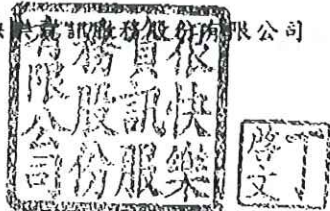 資訊服務股份有限公司
很快樂
資訊服
務股份
有限公司
丁
啓文